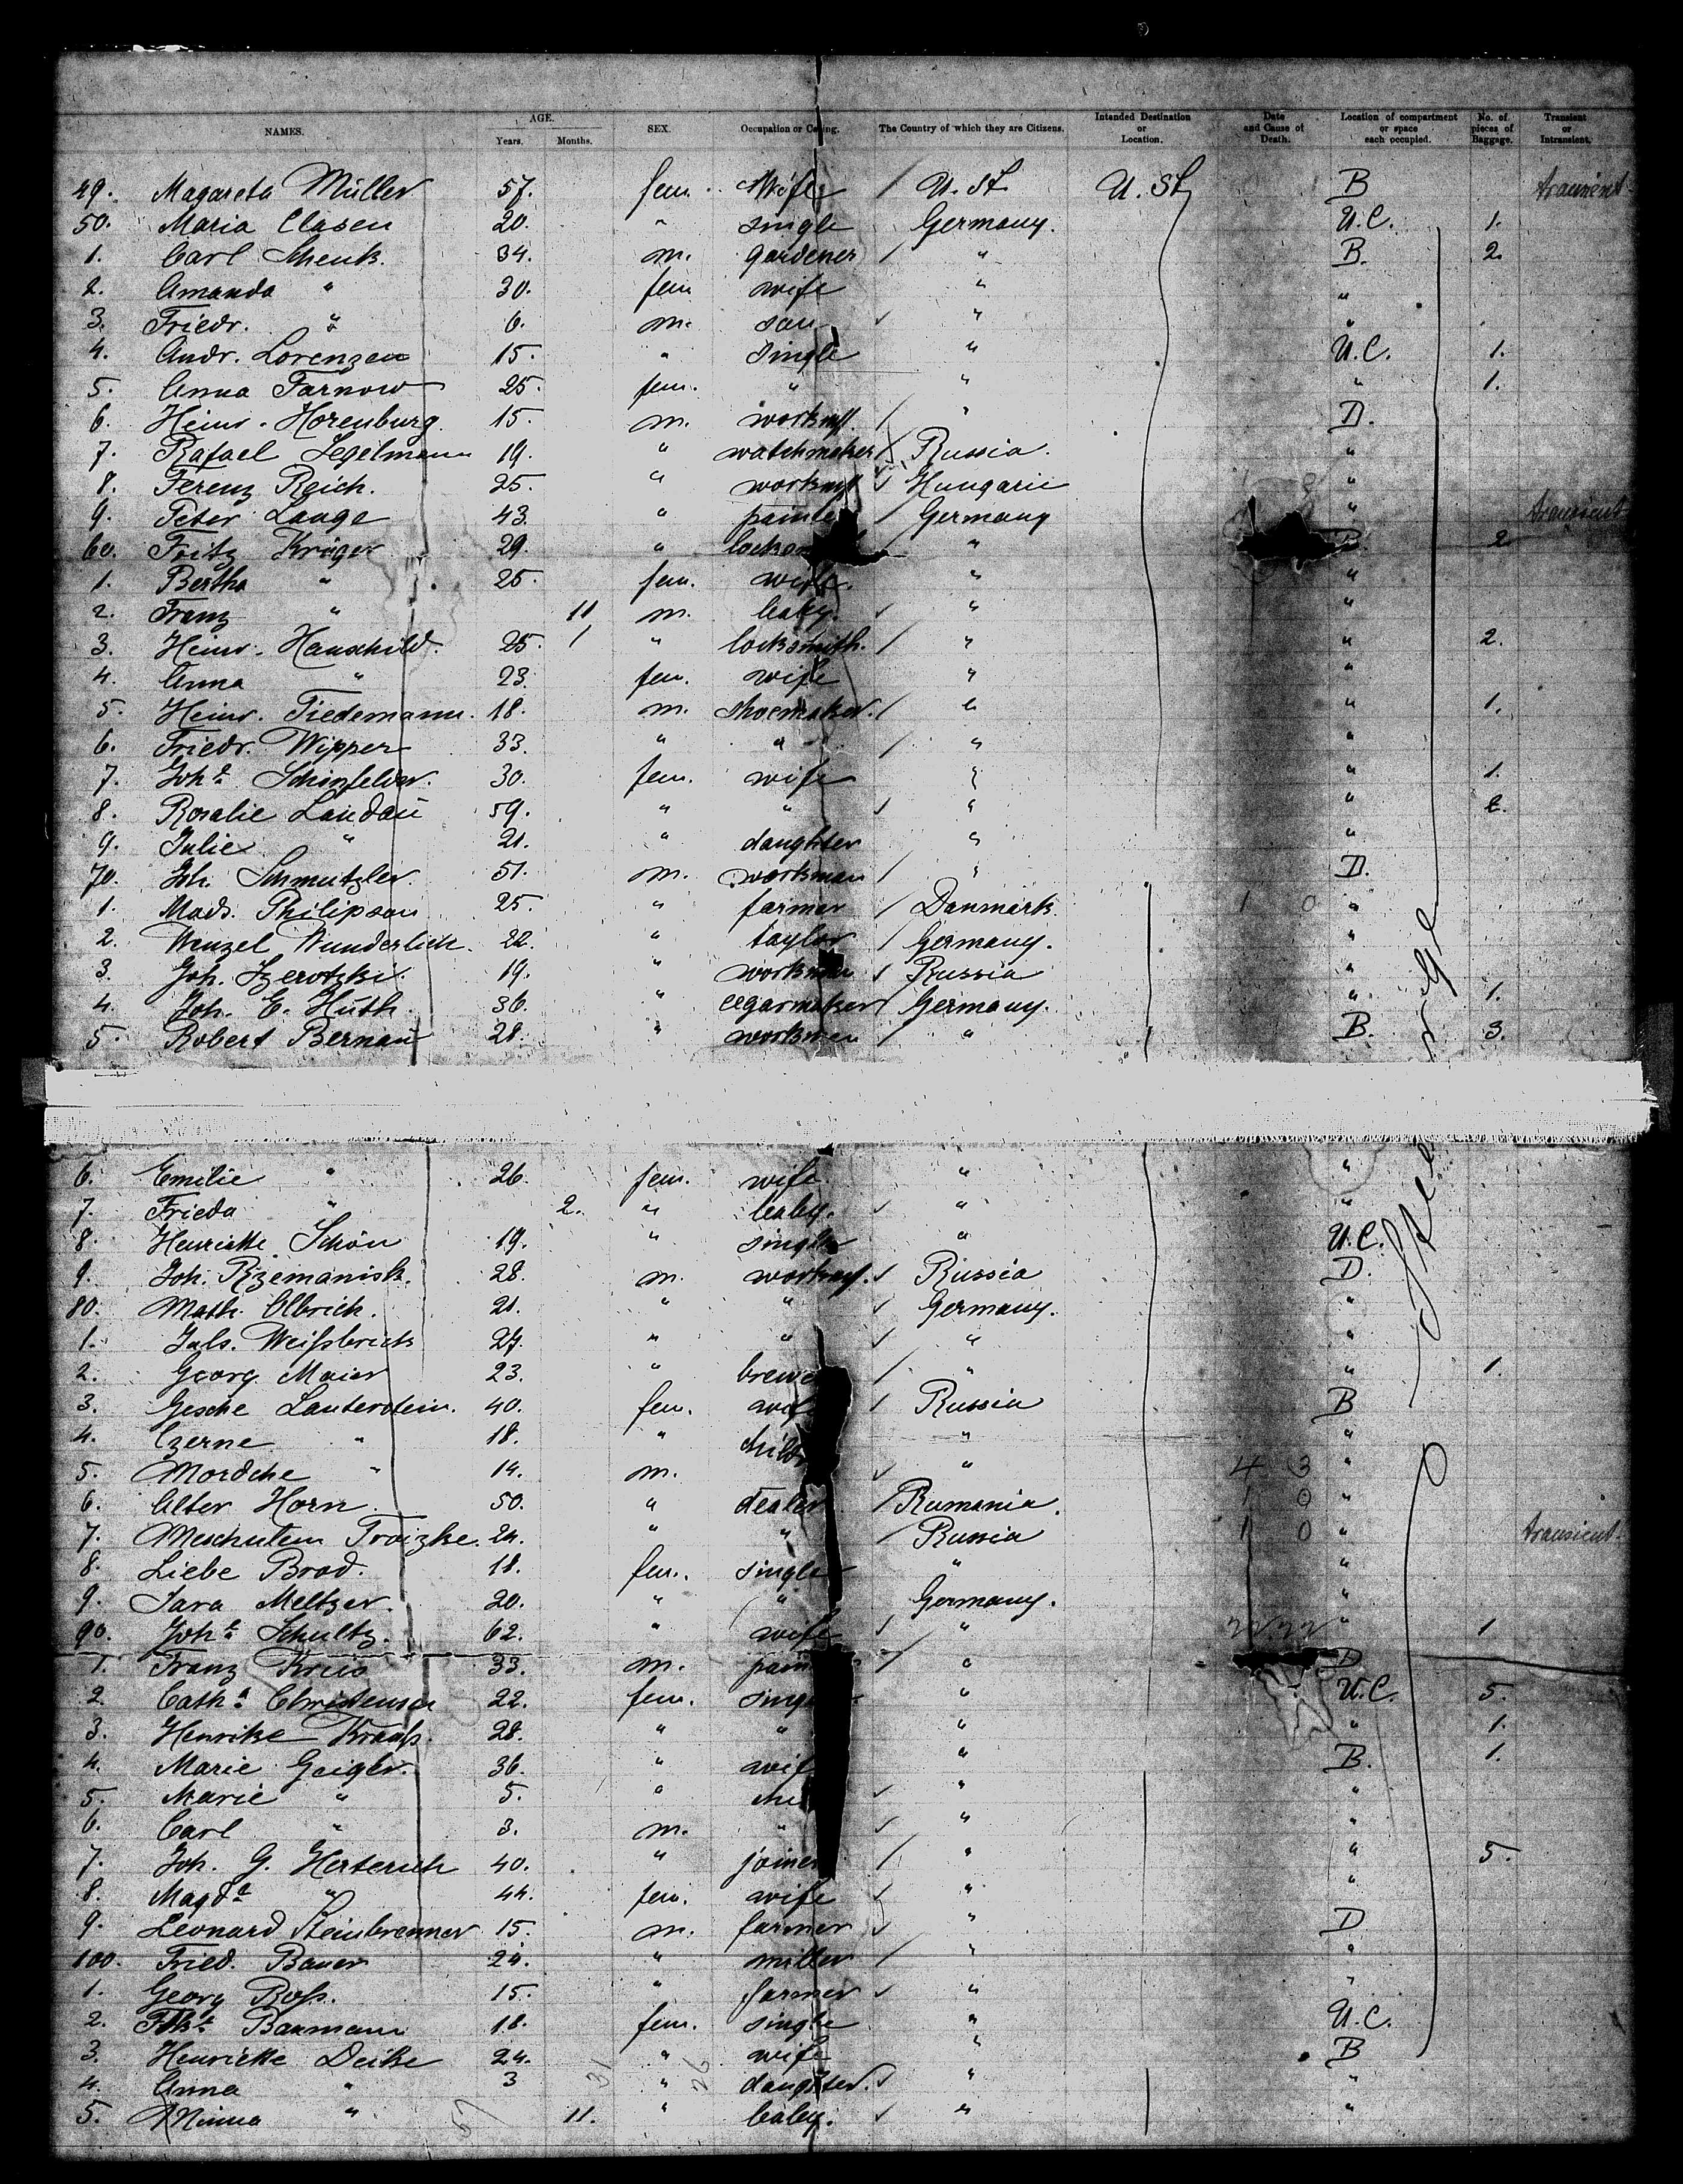 NAMES. AGE. Years. Months. SEX. Occupation or Calling. The Country of which they are Citizens. Intended Destination or Location. Date and Cause of Death. Location of compartment or space each occupied. No. of pieces of Baggage. Transient or Intransient.
49. Magareta Müller 57. fem. Wife / U. St. U. St. B transient
50. Maria Clasen 20. " single Germany. U.C. 1.
1. Carl Schenk 34. m. gardener / " B. 2.
2. Amanda " 30. fem wife " "
3. Friedr. " 6. m. son ✓ " "
4. Andr. Lorenzen 15. " single " U.C. 1.
5. Anna Farnow 25. fem. " " " 1.
6. Heinr. Horenburg. 15. m. / " D.
7. Rafael Segelmann 19. " watchmaker Russia. "
8. Ferenz Reich. 25. " ✓ Hungarie "
9. Peter Lange 43. " painter / Germany " transient
60. Fritz Krüger 29. " " B. 2
1. Bertha " 25. fem. wife. " "
2. Franz " 11 m. baby. ✓ " "
3. Heinr. Hauschild. 25. 1 " locksmith. / " " 2.
4. Anna " 23. fem. wife " "
5. Heinr. Tiedemann. 18. m. shoemaker. / " " 1.
6. Friedr. Wipper 33. " " / " "
7. Johª Schinfelder. 30. fem. wife " " 1.
8. Rosalie Landau 59. " " ✓ " "
9. Julie " 21. " daughter " "
70. Joh. Schmutzler. 51. m. workman / " D.
1. Mads. Philipson 25. " farmer / Danmark. 1 0 "
2. Wenzel Wunderlich. 22. " taylor / Germany. "
3. Joh. 19. " workman ✓ Russia "
4. Joh. E. Huth. 36. " cegarmaker / Germany. " 1.
5. Robert Bernau 28. " workmen / " B. 3.
Steerage
6. Emilie " 26. fem. wife. " "
7. Frieda " 2. " baby. ✓ " "
8. Henriette Schön 19. " single " U.C.
9. Joh. Rzemanisk. 28. m. ✓ Russia D.
80. Math. Olbrich. 21. " " ✓ Germany. "
1. Juls. Weißbrich 27. " " ✓ " "
2. Georg Maier 23. " brewe / " " 1.
3. Gesche Lauterstein. 40. fem. wif / Russia B
4. Czerne " 18. " child " "
5. Mordche " 14. m. ✓ " 4 3 "
6. Alter Horn. 50. " dealer / Rumania. 1 0 "
7. Meschulem Troizke. 24. " " / Russia 1 0 " transient.
8. Liebe Brod. 18. fem. single " "
9. Sara Meltzer. 20. " " Germany. "
90. Johª Schultz. 62. " wife ✓ " " 1
1. Franz Kreis 33. m. pain / " D
2. Cathª Christensen 22. fem. sing " U.C. 5.
3. Henrike Krauß. 28. " " " " 1.
4. Marie Geigler. 36. " wif " B. 1.
5. Marie " 5. " chi ✓ " "
6. Carl " 3. m. " ✓ " "
7. Joh. G. Herterich 40. " joiner / " " 5.
8. Magdª " 44. fem. wife ✓ " "
9. Leonard Steinbrenner 15. m. farmer ✓ " D
100. Fried. Bauer 24. " miller / " "
1. Georg Roß. 15. " farmer ✓ " "
2. Baumann 18. fem. single " U.C.
3. Henriette Deike 24. " wife " B
4. Anna " 3 " daughter. ✓ " "
5. Minna " 11. " baby. ✓ " "